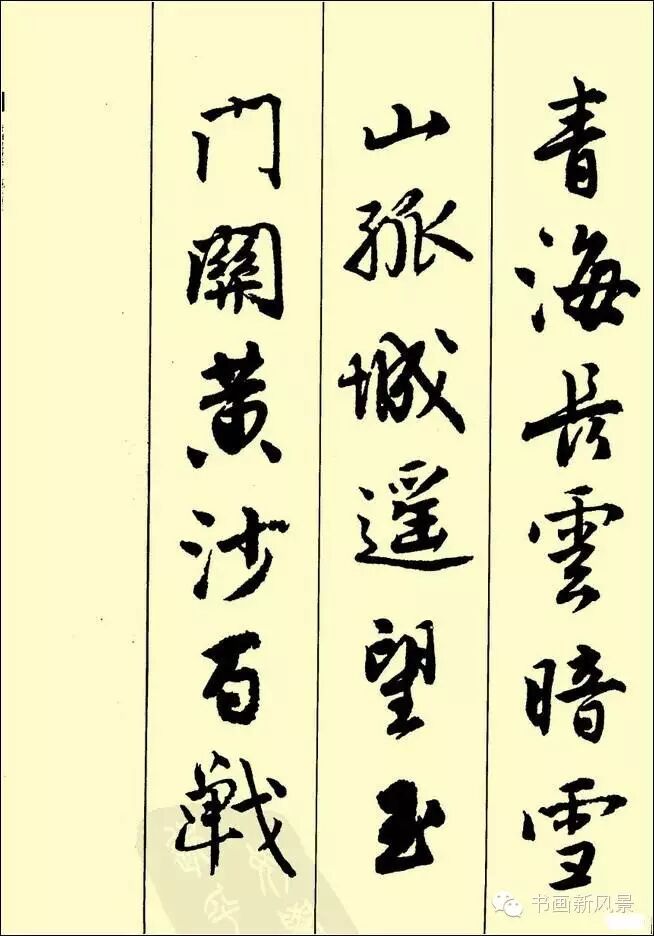 青海長雲暗雪
山孤城遥望玉
门關黄沙百戰
书画新风景